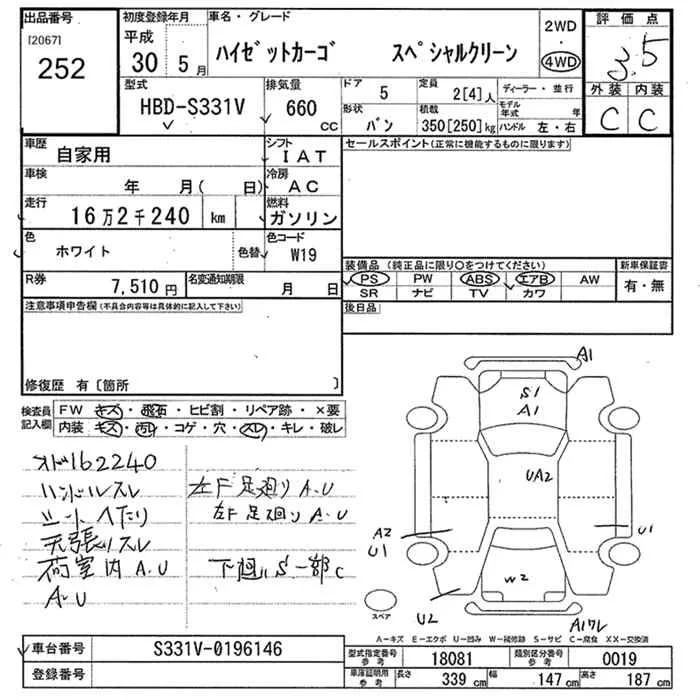 出品番号
[2067]
252
初度登録年月
平成
30 5月
車名・グレード
ハイゼットカーゴ スペシャルクリーン
2WD
・
4WD
評価点
3.5
外装 内装
C C
型式
HBD-S331V
排気量
660 cc
ドア 5
形状 バン
定員 2[4]人
積載 350[250]kg
ディーラー・並行
モデル年式 年
ハンドル 左・右
車歴
自家用
シフト
IAT
車検
年 月( 日)
冷房
AC
走行
16万2千240 km
燃料
ガソリン
色
ホワイト
色替
色コード
W19
R券
7,510円
名変通知期限
月 日
セールスポイント(正常に機能するものに限ります)
装備品 (純正品に限り○をつけてください)
PS PW ABS エアB AW
SR ナビ TV カワ
新車保証書
有・無
後日品
注意事項申告欄(不具合内容等は具体的に記入して下さい)
修復歴 有〔箇所 〕
検査員記入欄
FW キズ・飛石・ヒビ割・リペア跡・×要
内装 キズ・汚れ・コゲ・穴・スレ・キレ・破レ
オド162240
ハンドルスレ
シートヘたり
天張りスレ
荷室内 A.U
A.U
左F足廻り A.U
左F足廻り A.U
下廻りS一部C
A1
S1
A1
UA2
A2
U1
U1
W2
U2
スペア
A1ワレ
A-キズ E-エクボ U-凹み W-補修跡 S-サビ C-腐食 XX-交換済
車台番号
S331V-0196146
登録番号
型式指定番号
参考
18081
類別区分番号
参考
0019
車庫証明用
参考
長さ 339 cm 幅 147 cm 高さ 187 cm